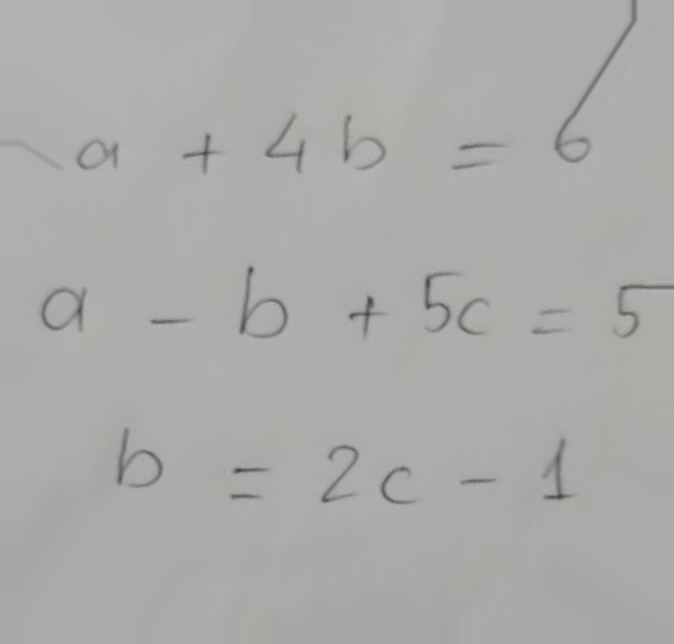 a + 4b = 6
a - b + 5c = 5
b = 2c - 1